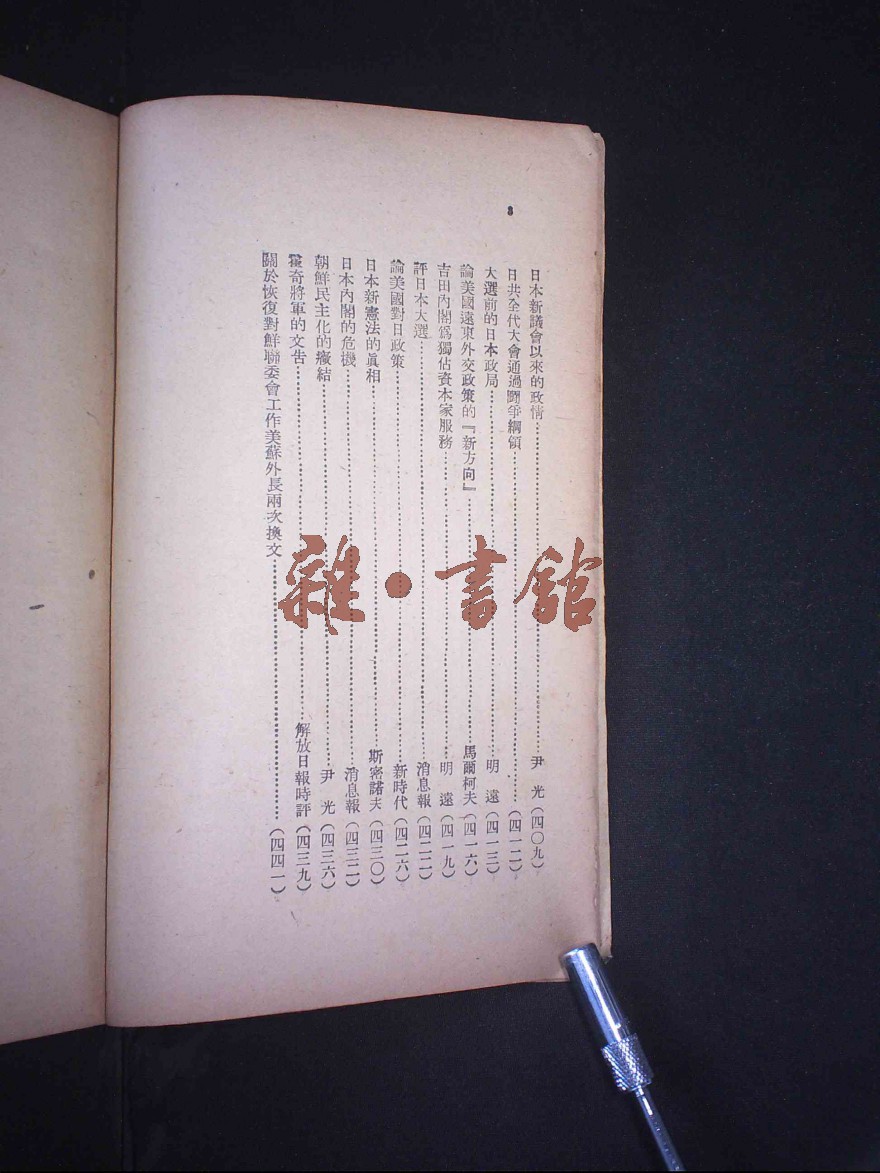 8
日本新議會以來的政情……尹 光(四〇九)
日共全代大會通過鬪爭綱領……(四一二)
大選前的日本政局……明 遠(四一三)
論美國遠東外交政策的『新方向』……馬爾柯夫(四一六)
吉田內閣爲獨佔資本家服務……明 遠(四一九)
評日本大選……消息報(四二二)
論美國對日政策……新時代(四二六)
日本新憲法的眞相……斯密諾夫(四三〇)
日本內閣的危機……消息報(四三二)
朝鮮民主化的癥結……尹 光(四三六)
霍奇將軍的文告……解放日報時評(四三九)
關於恢復對鮮聯委會工作美蘇外長兩次換文……(四四一)
雜·書館